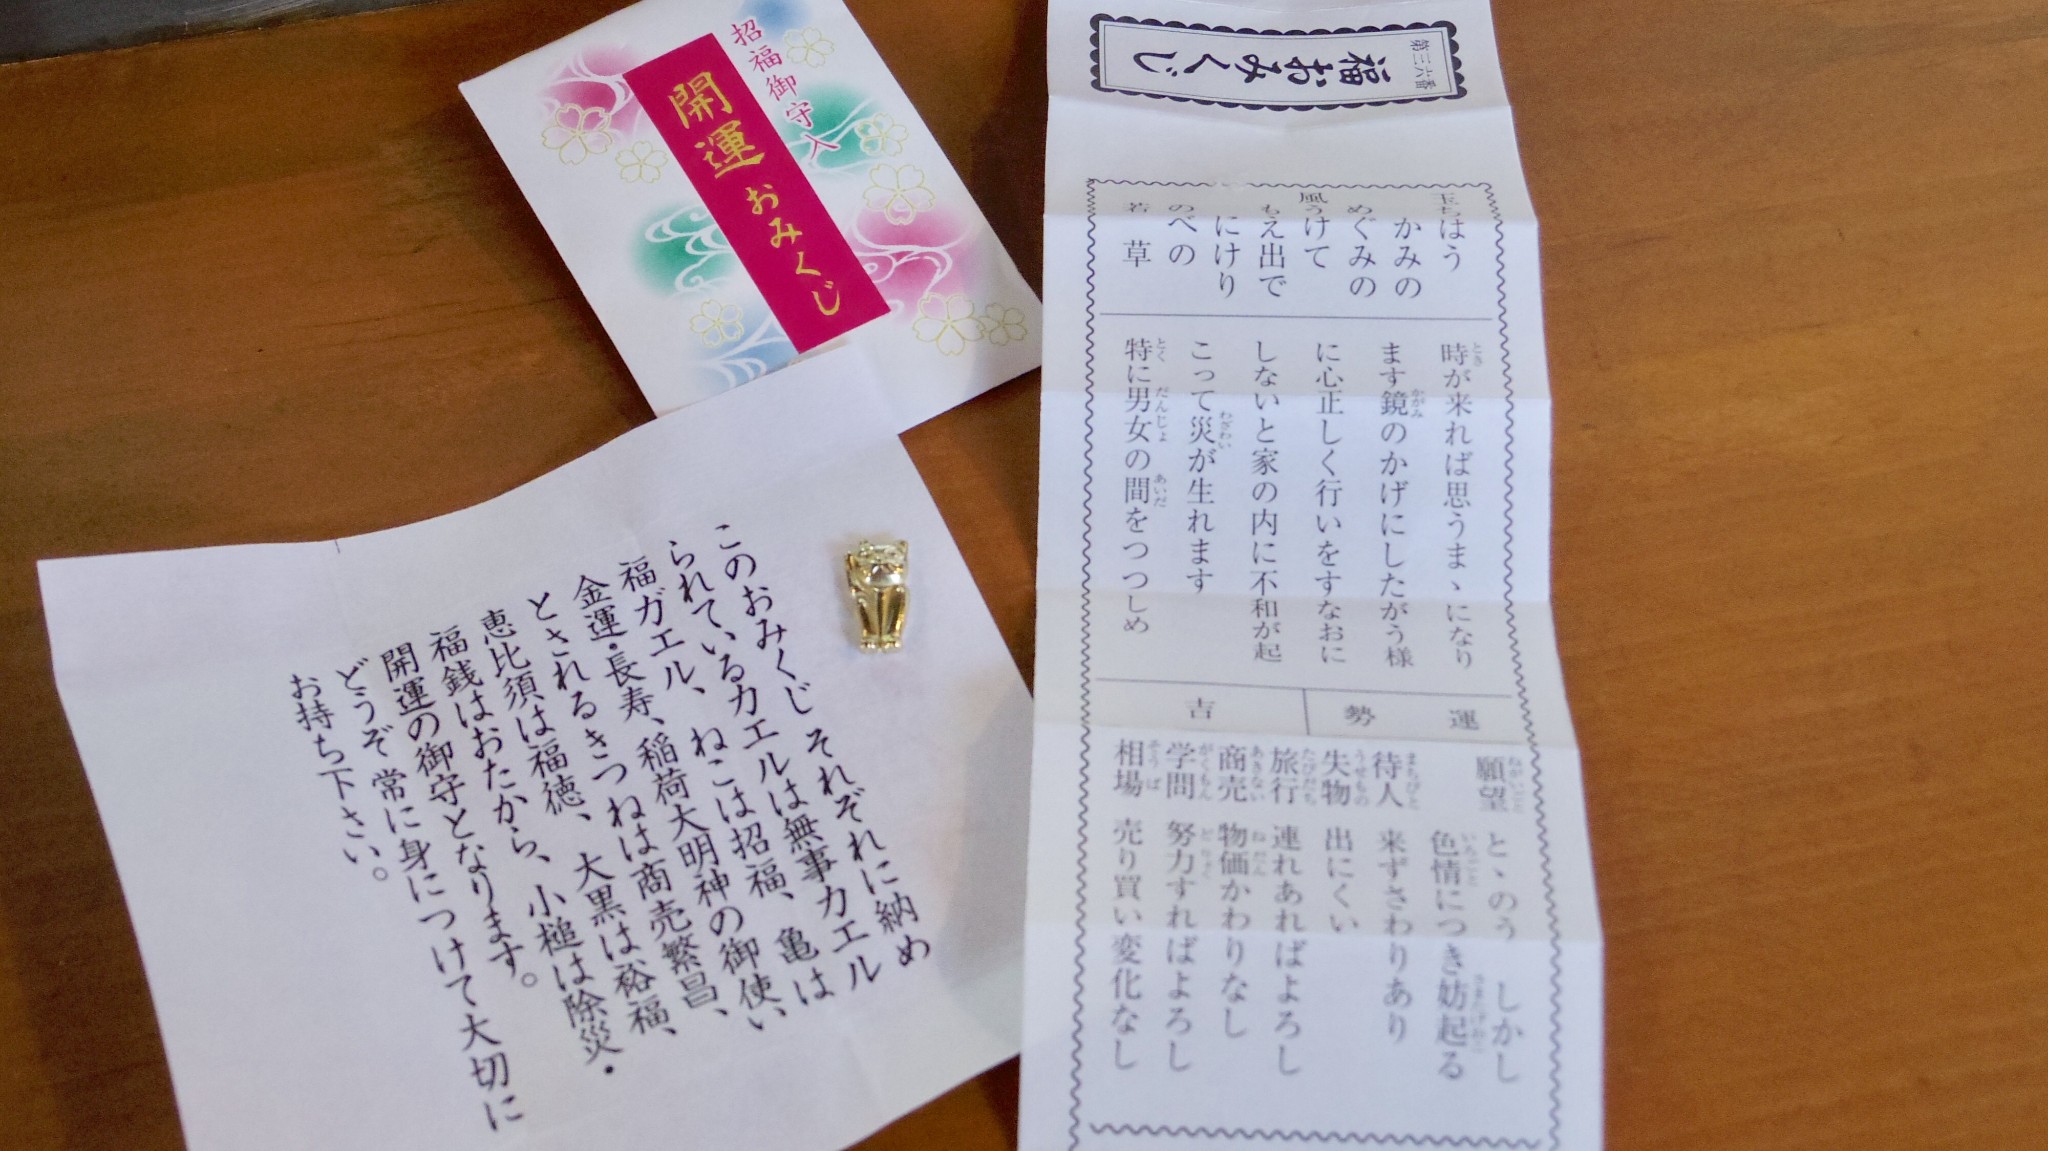 招福御守入
開運おみくじ
このおみくじそれぞれに納め
られているカエルは無事カエル
福ガエル、ねこは招福、亀は
金運・長寿、稲荷大明神の御使い
とされるきつねは商売繁昌、
恵比須は福徳、大黒は裕福、
福銭はおたから、小槌は除災・
開運の御守となります。
どうぞ常に身につけて大切に
お持ち下さい。
第三六番
福おみくじ
玉ちはう
かみの
めぐみの
風うけて
もえ出で
にけり
のべの
若草
時が来れば思うまゝになり
ます鏡のかげにしたがう様
に心正しく行いをすなおに
しないと家の内に不和が起
こって災が生れます
特に男女の間をつつしめ
運勢 吉
願望 とゝのう しかし
色情につき妨起る
待人 来ずさわりあり
失物 出にくい
旅行 連れあればよろし
商売 物価かわりなし
学問 努力すればよろし
相場 売り買い変化なし